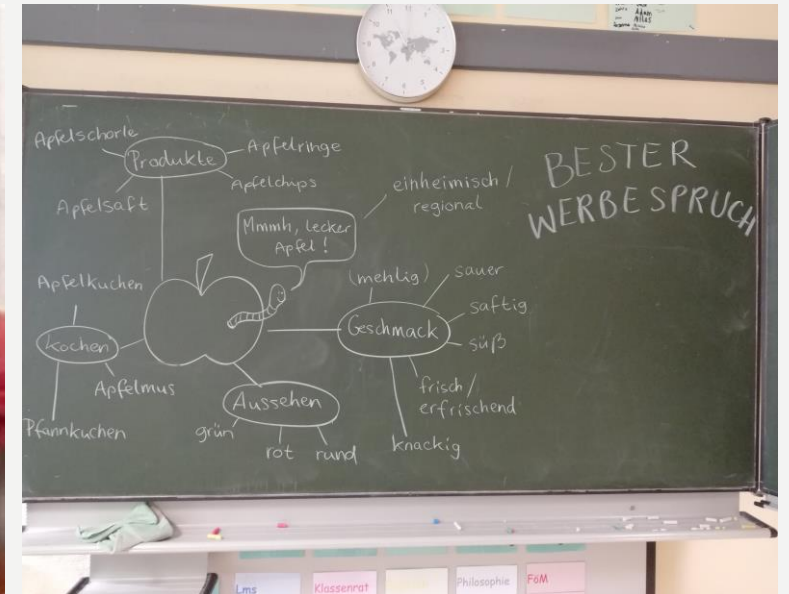 Apfelschorle
Produkte
Apfelringe
Apfelchips
Apfelsaft
einheimisch /
regional
Mmmh, lecker
Apfel!
BESTER
WERBESPRUCH
Apfelkuchen
Kochen
Apfelmus
Pfannkuchen
(mehlig)
sauer
saftig
Geschmack
süß
frisch /
erfrischend
knackig
Aussehen
grün
rot
rund
Lms
Klassenrat
Philosophie
FöM